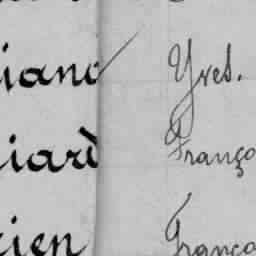 iano Yves.
iard Franço
rien França